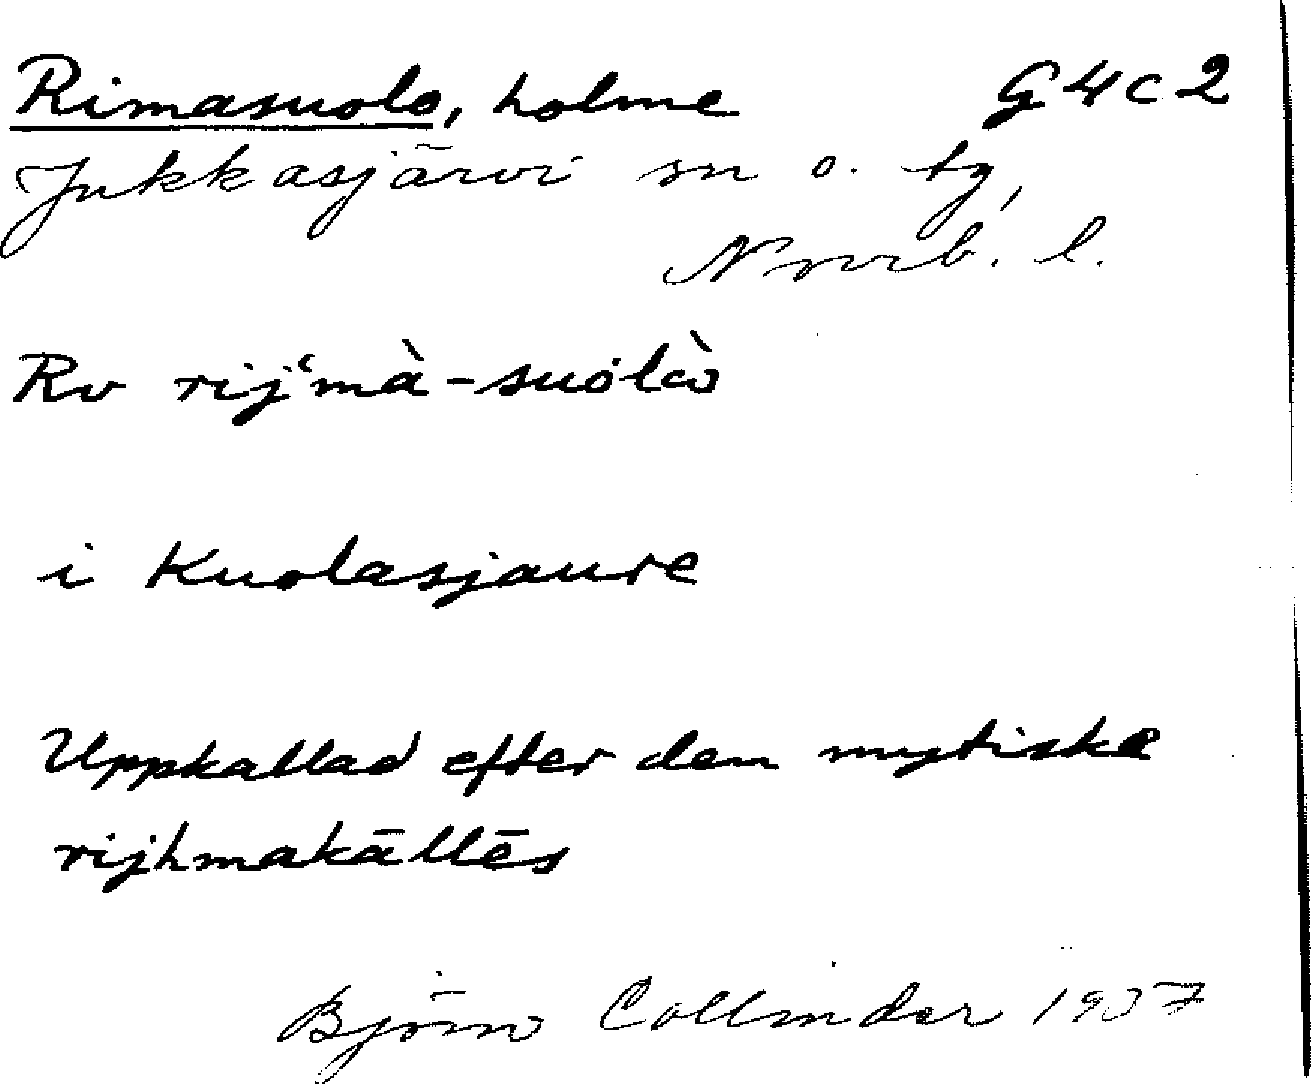 Rimasuolo, holme G4c2
Jukkasjärvi sn o. tg,
Norrb. l.
Rv rij‘mà-suólò
i Kuolasjaure
Uppkallad efter den mytiske
rijhmakāllēs
Björn Collinder 1937